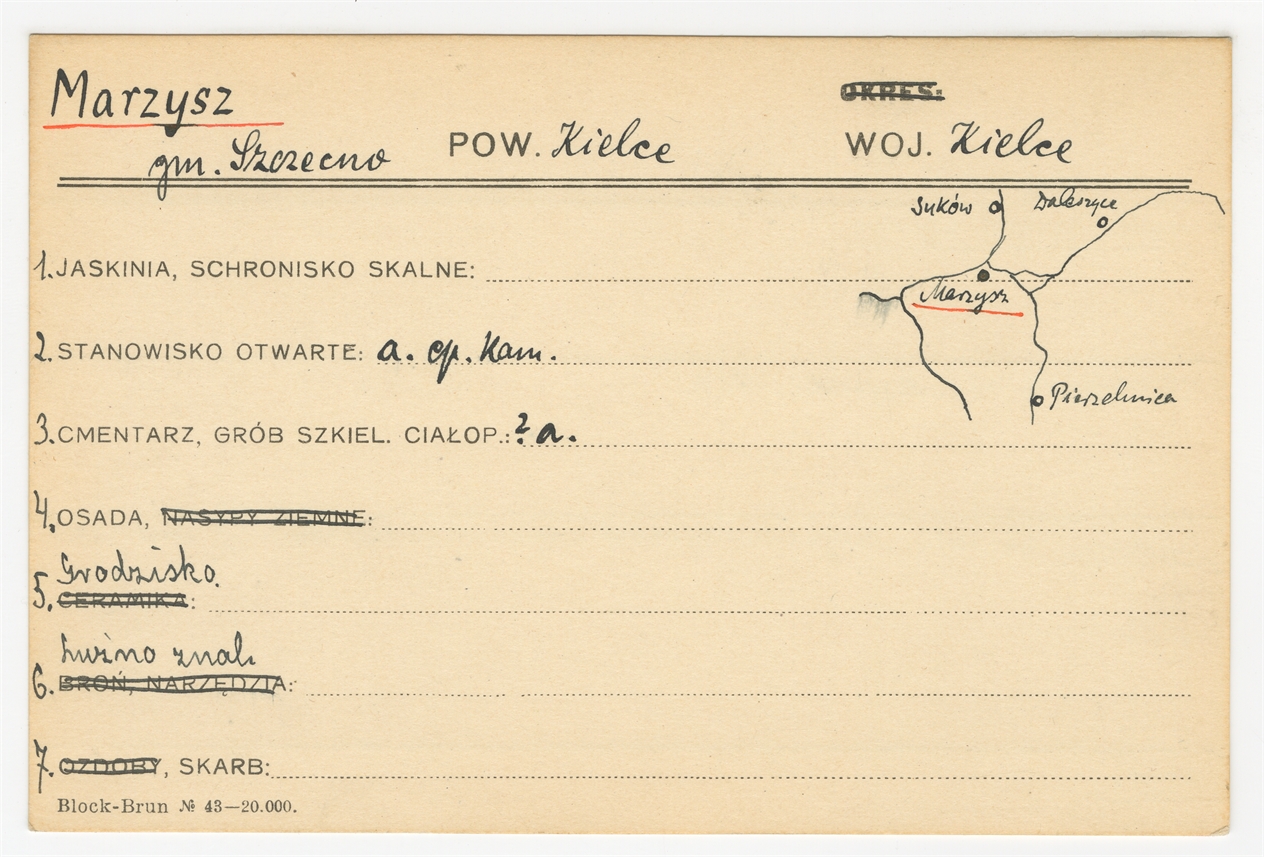 Marzysz
OKRES:
gm. Szczecno POW. Kielce WOJ. Kielce
Suków Daleszyce
1. JASKINIA, SCHRONISKO SKALNE:
Marzysz
2. STANOWISKO OTWARTE: a. ep. kam.
Pierzchnica
3. CMENTARZ, GRÓB SZKIEL. CIAŁOP.: ? a.
4. OSADA, NASYPY ZIEMNE:
Grodzisko
5. CERAMIKA:
Luźno znal.
6. BROŃ, NARZĘDZIA:
7. OZDOBY, SKARB:
Block-Brun № 43—20.000.